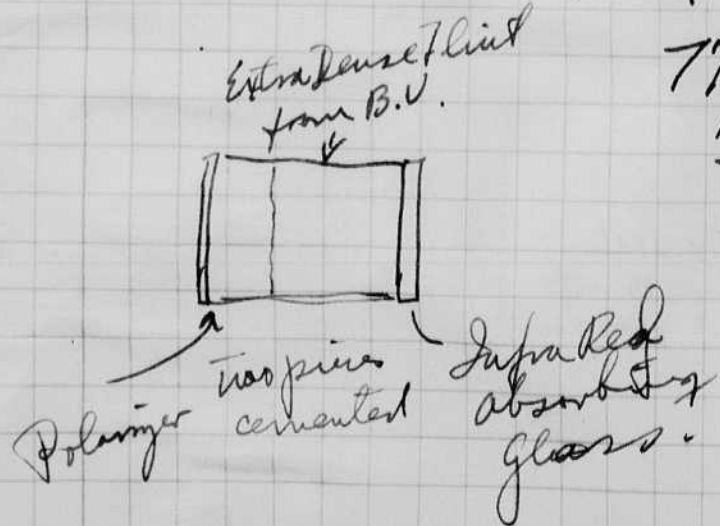 Extra Dense Flint
from B.V.
77
Polarizer
two pieces
cemented
Infra Red
absorbing
glass.